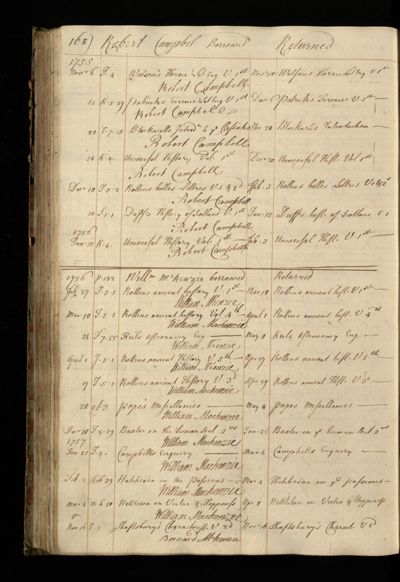 168) Robert Campbel Borrowed Returned
1755
Nov 6 F.4. Watson's Horace Lat Eng V 1st Nov 20 Watsons Horace Lat Eng V 1st
Robert Campbell
12 Patricks Terence Lat Eng V 1st Decr 6 Patricks Terence V 1st
Robert Campbell
22 E.7.15 Blackwells Introdn to ye Classicks Nov 28 Blackwells Introduction
Robert Campbell
28 K.2. Universal History Vol. 1st Decr 20 Universal Hist. Vol 1st
Robert Campbell
Decr 18 Rollins belles Lettres V 1 & 2d Feb. 3 Rollins belles Lettres V 1 & 2d
Robert Campbell
20 Duffs History of Scotland V 1st Jan 12 Duffs hist. of Scotland V 1
Robert Campbell
1756
Jan 12 K.4. Universal History Vol. Feb. 3 Universal Hist. V 1st
Robert Campbell
1756 Willm McKenzie borrowed Returned
Feb. 27 F.5.1 Rollins ancient history V. 1st Mar 18 Rollins ancient hist. V 1st
William McKenzie
Mar 18 F.5.1 Rollins ancient history Vol 4th April 1 Rollins ancient hist. V 4th
William Mackenzie
24 F.7.55 Keils astronomy Eng May 8 Keils Astronomy Eng
William McKenzie
April 1 F.5.1 Rollins ancient History V. 5th Apr 9 Rollins ancient hist. V 5th
William McKenzie
9 F.5.1 Rollins ancient History V 3d Apr 29 Rollins ancient Hist. V 3d
William Mackenzie
28 Pope's Miscellanies May 8 Popes Miscellanies
William Mackenzie
Decr 18 Baxter on the human Soul 2nd Jan 25 Baxter on ye human Soul 2d
1757 William Mackenzie
Jan 25 F.4. Campbells Enquiry Mar 4 Campbells Enquiry
William Mackenzie
Feb 2 Hutchison on the Passions Mar 4 Hutchison on ye passions
William Mackenzie
Mar 4 Nettleton on Virtue & Happiness Apr 8 Nettleton on Virtue & Happiness
William Mackenzie
Nov 16 Shaftsbury's Characterist. V 2d Shaftsbury's Charact. V 2d
Bernard McKenzie